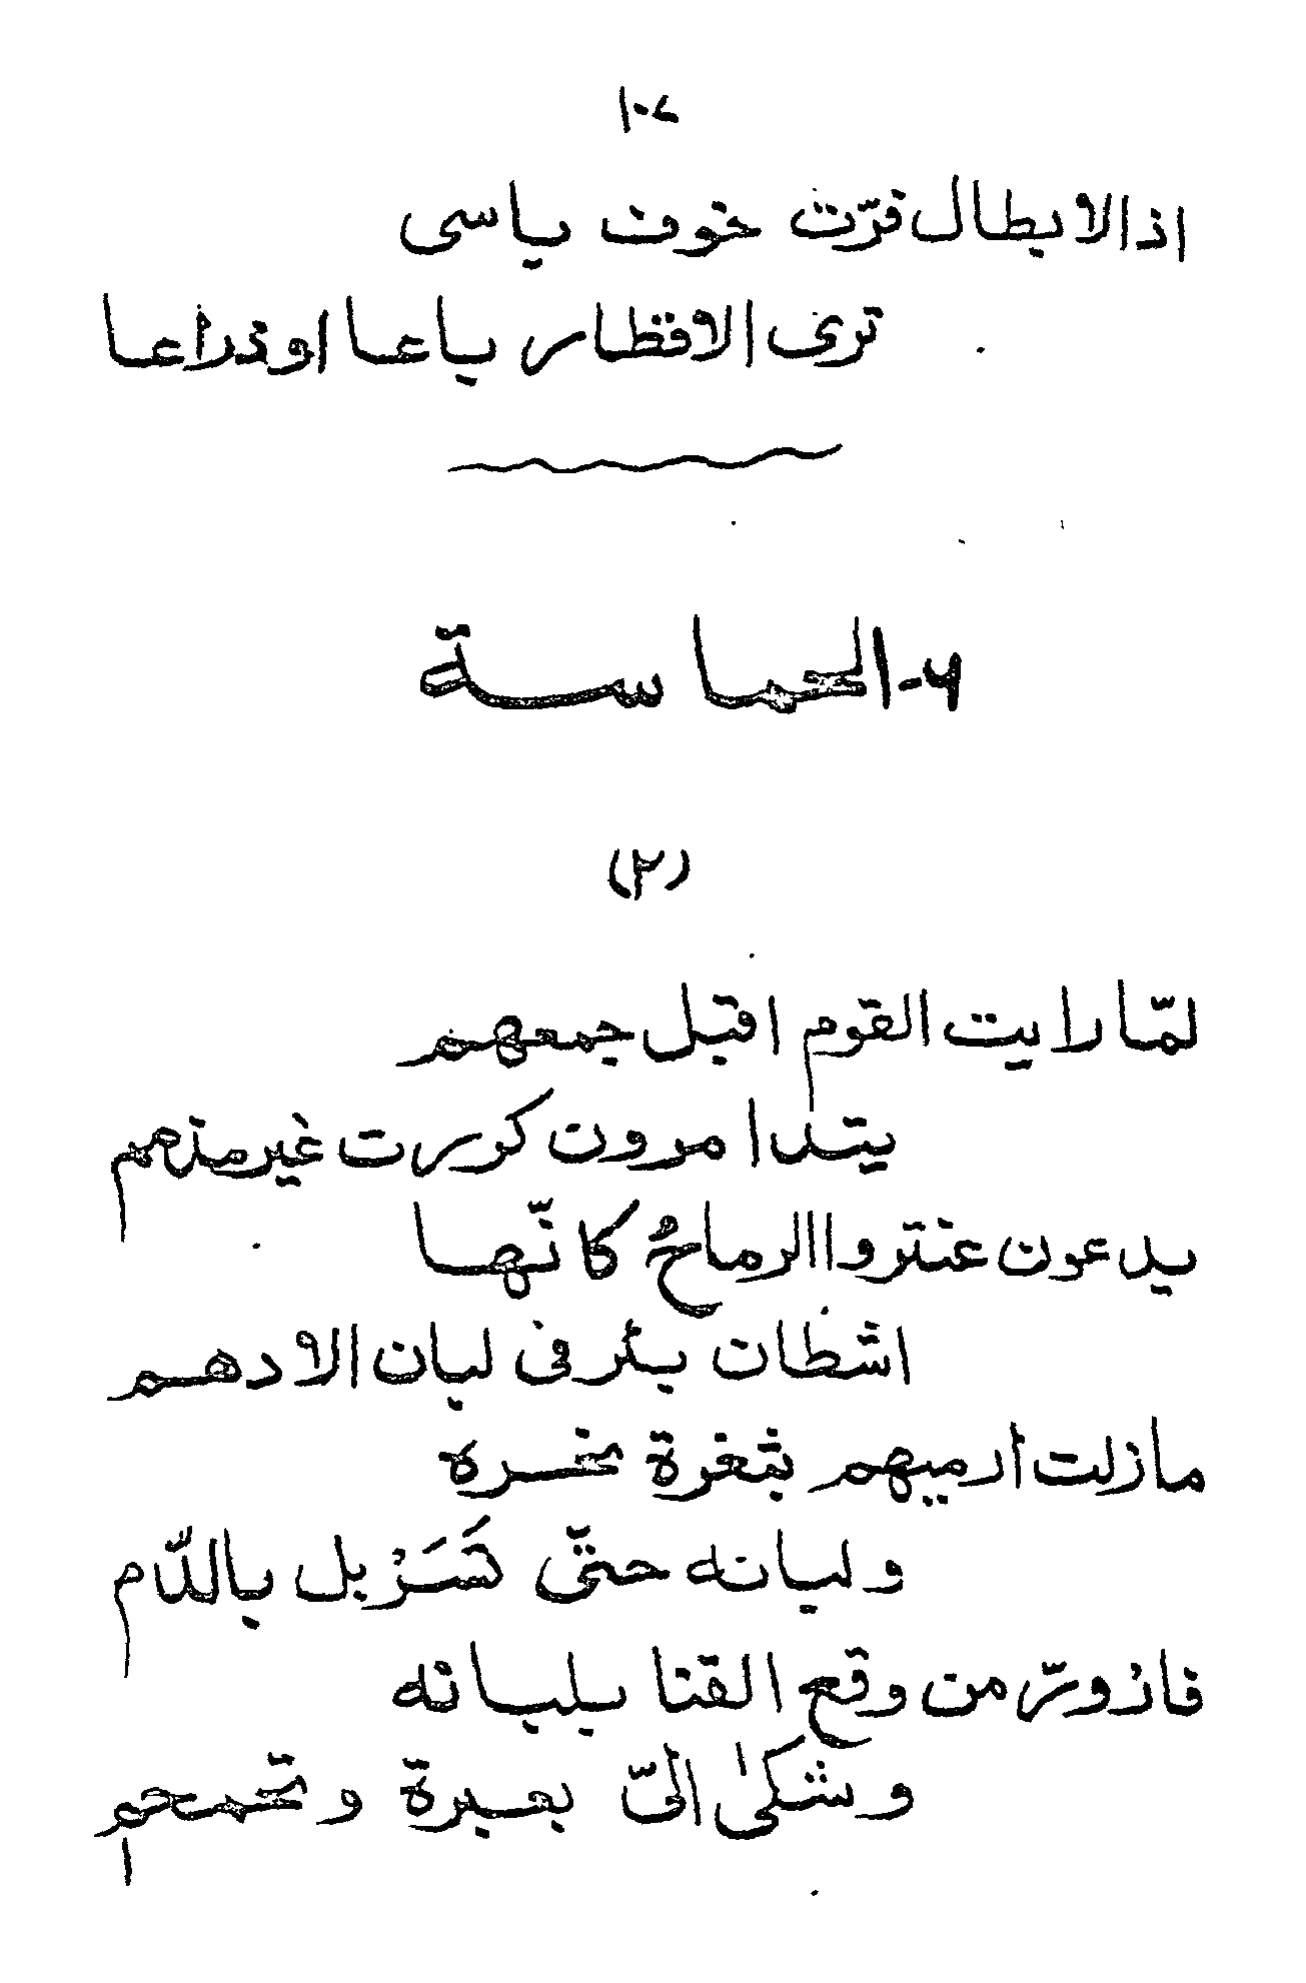 ١٠٢
اذ الابطال فرّت خوف باسى
ترى الاقطار باعا او ذراعا
٦-الحماسة
(٢)
لمّا رايت القوم اقبل جمعهم
يتدا مرون كررت غير مذمم
يدعون عنتر واالرماحُ كانّها
اشطان بئر فى لبان الادهم
مازلت أرميهم بثغرة نحره
ولبانه حتّى تَسَرْبل بالدّم
فازورّ من وقع القنا بلبانه
وشكىٰ الىّ بعبرة وتحمحم